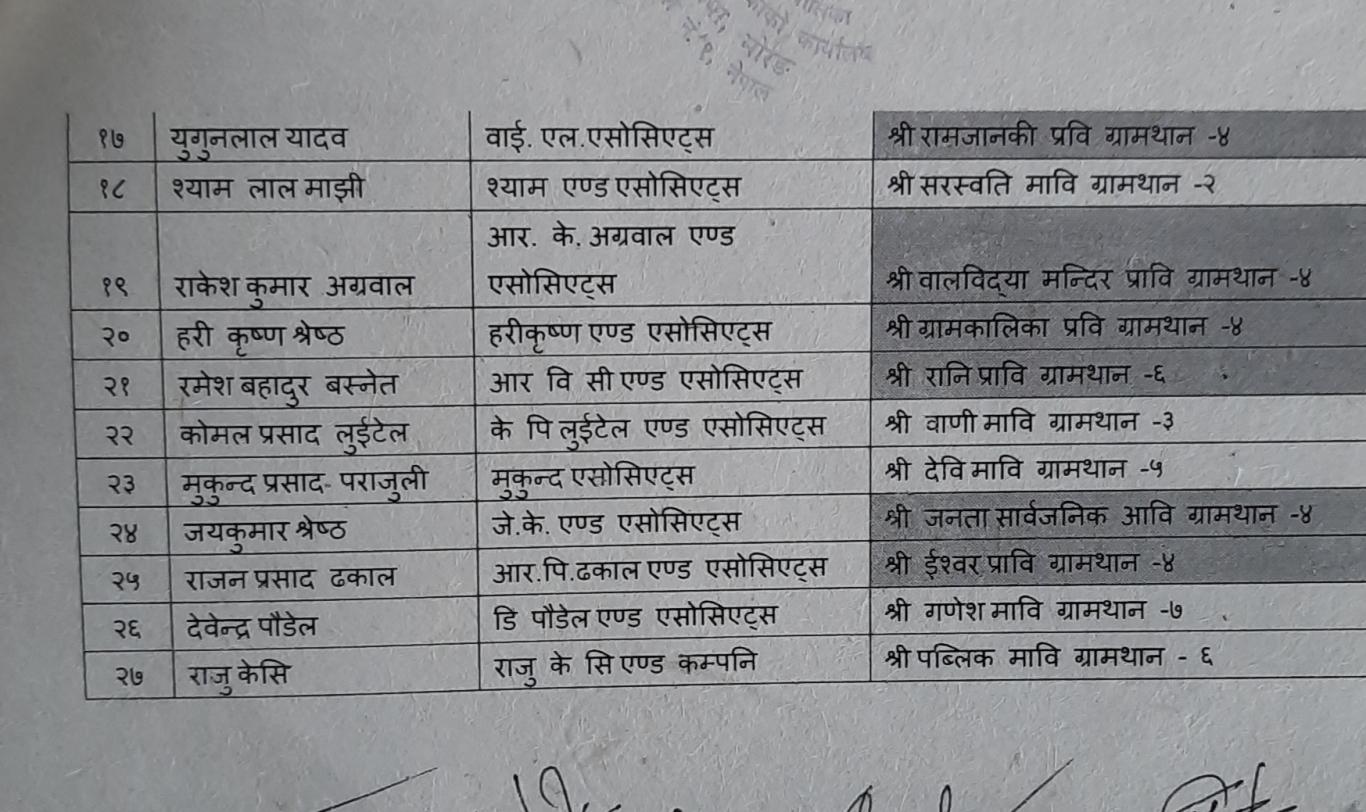 कार्यालय
मोरङ
नेपाल
१७ युगुनलाल यादव वाई. एल.एसोसिएट्स श्री रामजानकी प्रवि ग्रामथान -४
१८ श्याम लाल माझी श्याम एण्ड एसोसिएट्स श्री सरस्वति मावि ग्रामथान -२
आर. के. अग्रवाल एण्ड
१९ राकेश कुमार अग्रवाल एसोसिएट्स श्री वालविद्या मन्दिर प्रावि ग्रामथान -४
२० हरी कृष्ण श्रेष्ठ हरीकृष्ण एण्ड एसोसिएट्स श्री ग्रामकालिका प्रवि ग्रामथान -४
२१ रमेश बहादुर बस्नेत आर वि सी एण्ड एसोसिएट्स श्री रानि प्रावि ग्रामथान -६
२२ कोमल प्रसाद लुईटेल के पि लुईटेल एण्ड एसोसिएट्स श्री वाणी मावि ग्रामथान -३
२३ मुकुन्द प्रसाद- पराजुली मुकुन्द एसोसिएट्स श्री देवि मावि ग्रामथान -५
२४ जयकुमार श्रेष्ठ जे.के. एण्ड एसोसिएट्स श्री जनता सार्वजनिक आवि ग्रामथान -४
२५ राजन प्रसाद ढकाल आर.पि.ढकाल एण्ड एसोसिएट्स श्री ईश्वर प्रावि ग्रामथान -४
२६ देवेन्द्र पौडेल डि पौडेल एण्ड एसोसिएट्स श्री गणेश मावि ग्रामथान -७
२७ राजु केसि राजु के सि एण्ड कम्पनि श्री पब्लिक मावि ग्रामथान - ६